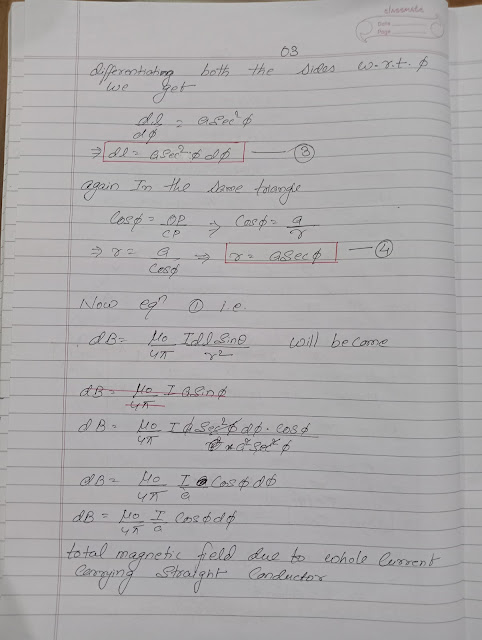 classmate
Date
Page
03
differentiating both the sides w.r.t. φ
we get
dl/dφ = a sec²φ
⇒ dl = a sec²φ dφ — ③
again In the same triangle
Cosφ = OP/CP ⇒ Cosφ = a/r
⇒ r = a/Cosφ ⇒ r = a secφ — ④
Now eqⁿ ① i.e.
dB = μ₀/4π Idl sinθ/r² will become
dB = μ₀/4π I a sinφ
dB = μ₀/4π I a sec²φ dφ · cosφ / a² sec²φ
dB = μ₀/4π I/a Cosφ dφ
dB = μ₀/4π I/a Cosφ dφ
total magnetic field due to whole Current
Carrying Straight Conductor